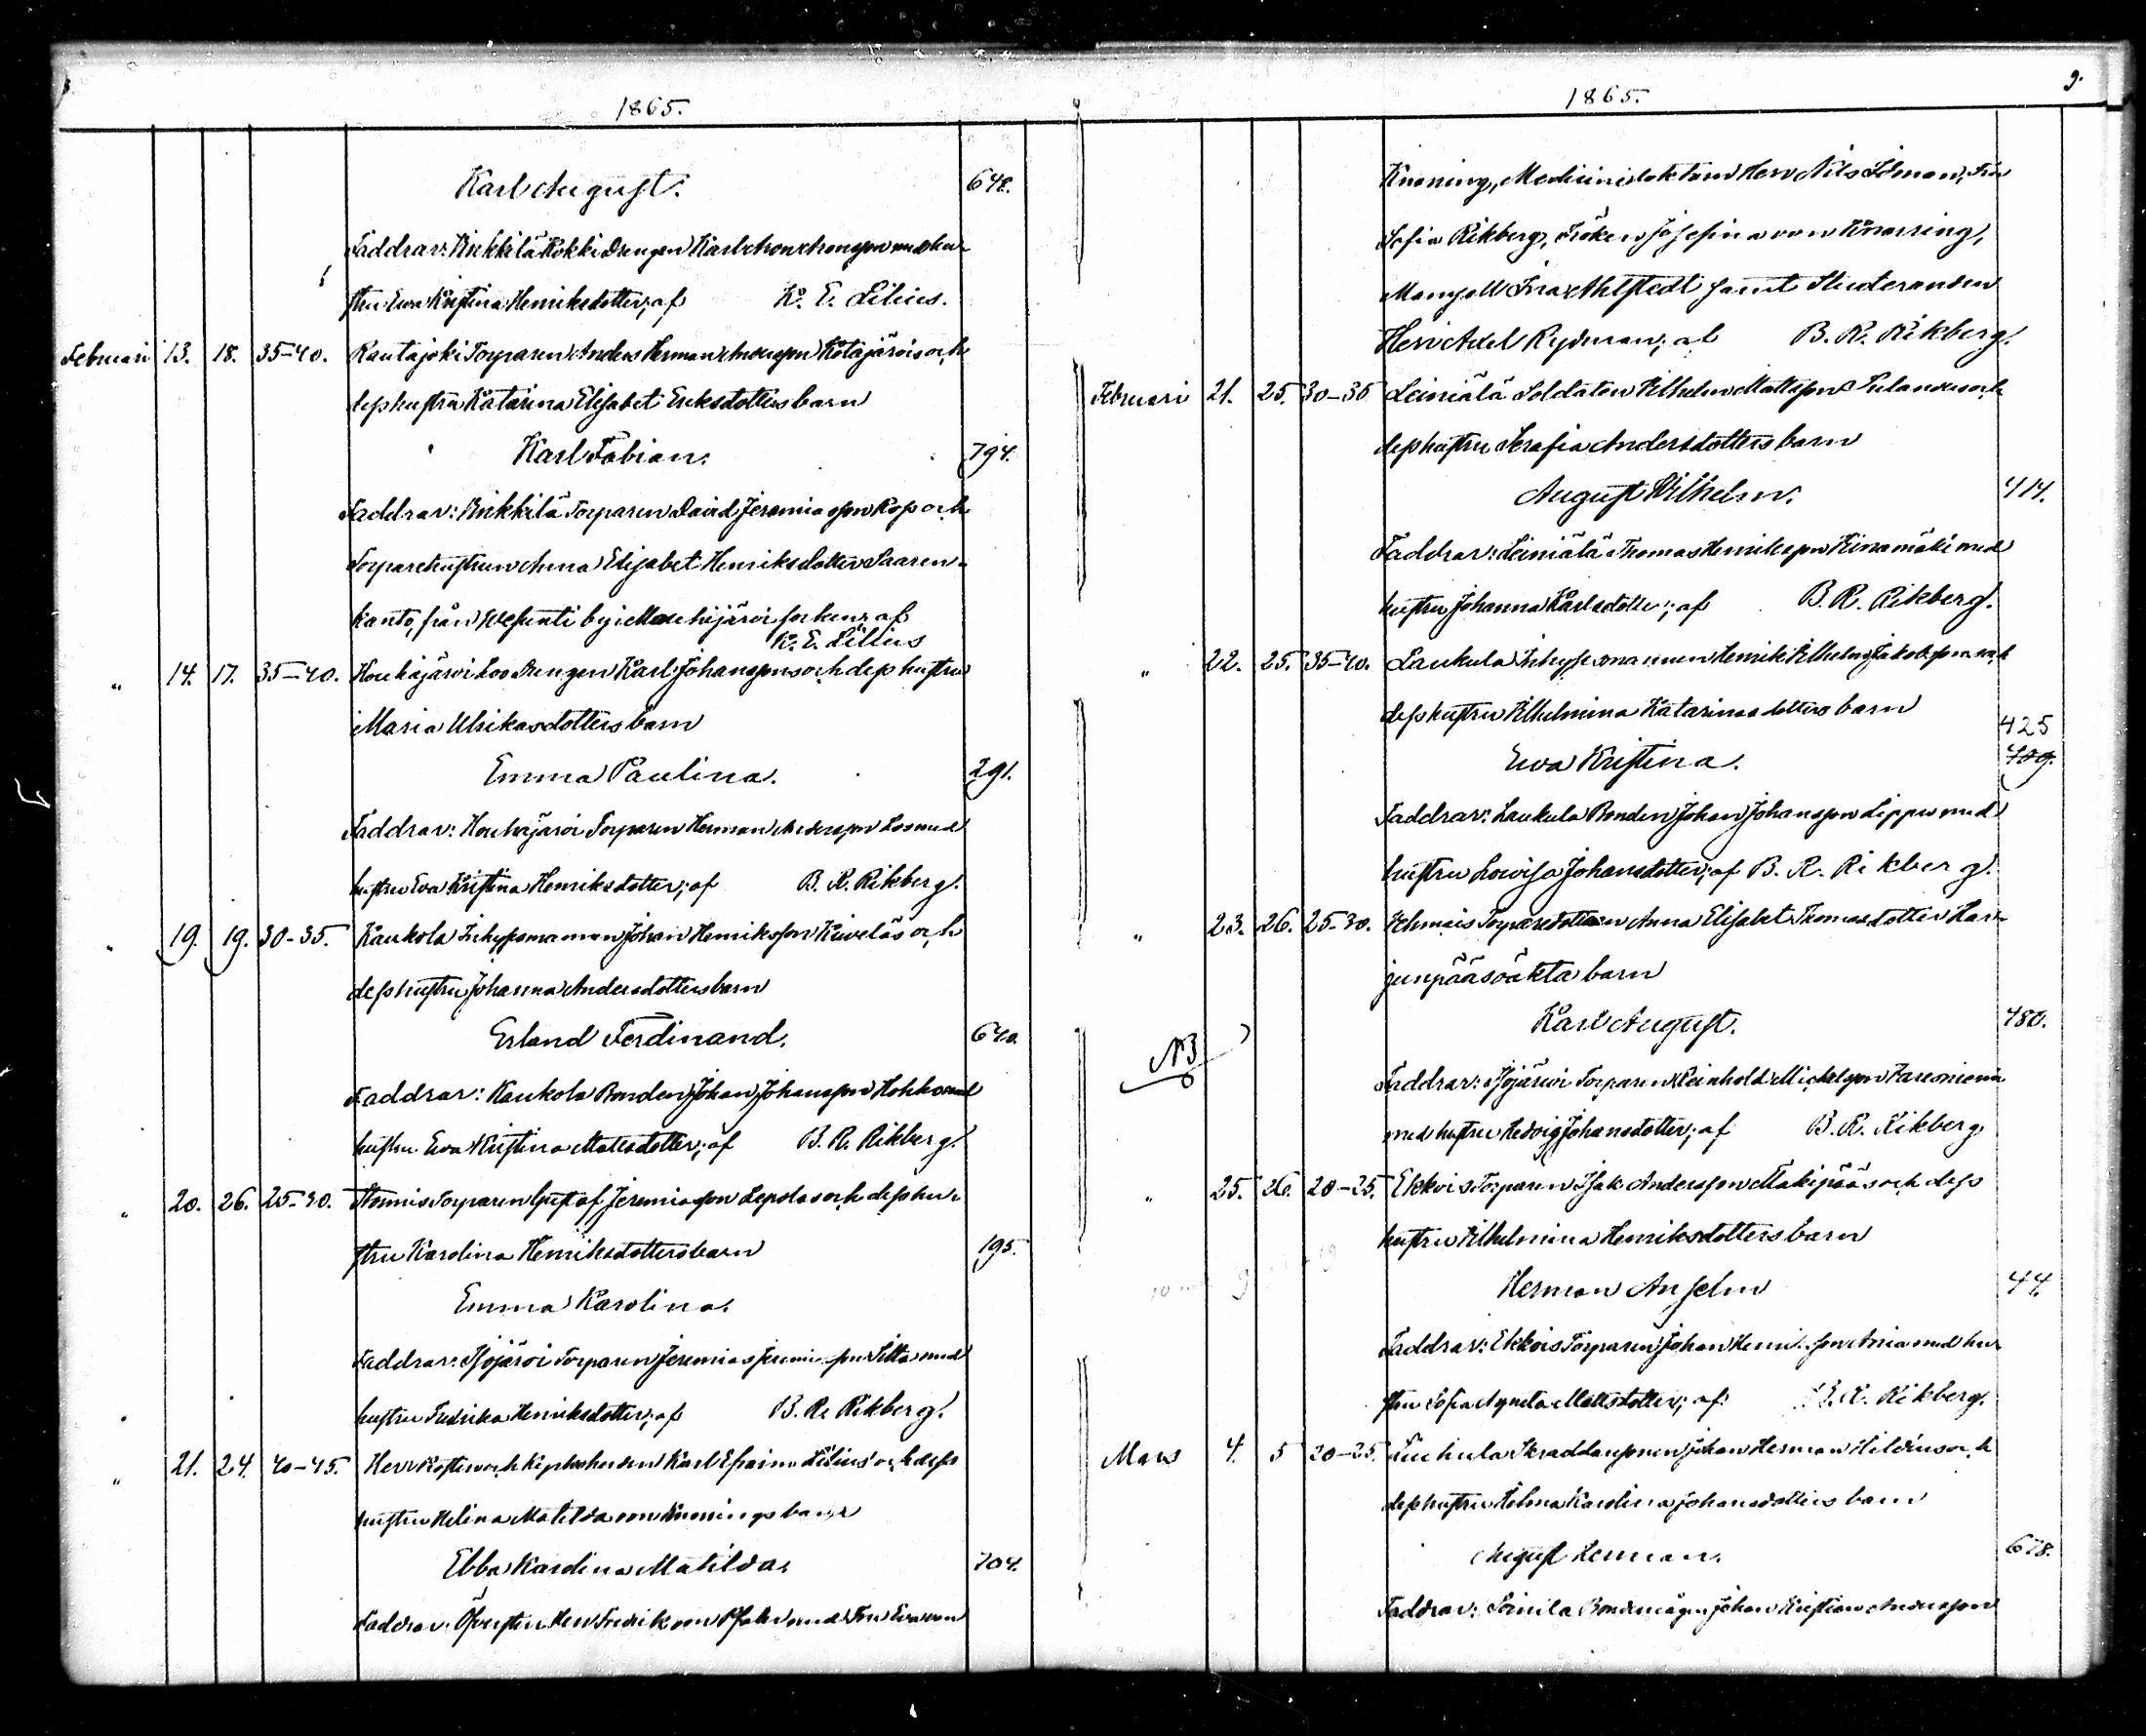 1865.
Karl August. 648.
Faddrar: Kirkkilä Kokki Drengen Karl med hu-
stru Eva Kristina Henriksdotter; af K. E. Lilius.
Februari 13. 18. 35–40. Rautajoki Torparen Anders Herman Andersson Kotajärvis och
dess hustru Katarina Elisabet Eriksdotters barn
Karl Fabian. 794.
Faddrar: Kirkkilä Torparen David Jeremiasson och
Torparehustrun Anna Elisabet Henriksdotter Saaren-
kanto, från by i Mouhijärvi socken; af
K. E. Lilius
" 14. 17. 35–40. Kouhijärvi Loo Drengen Karl Johanssons och dess hustru
Maria Ulrikasdotters barn
Emma Paulina. 291.
Faddrar: Kouhijärvi Torparen Herman Andersson Loo med
hustru Eva Kristina Henriksdotter; af B. R. Rikberg.
" 19. 19. 30–35. Kaukola Inhysesmannen Johan Henriksson Kiveläs och
dess hustru Johanna Andersdotters barn
Erland Ferdinand. 640.
Faddrar: Kaukola Bonden Johan Johansson Hohko med
hustru Eva Kristina Mattsdotter; af B. R. Rikberg.
" 20. 26. 25–30. Torparen Gustaf Jeremiasson Lepolas och dess hu-
stru Karolina Henriksdotters barn 195.
Emma Karolina.
Faddrar: Isojärvi Torparen Jeremias med
hustru Fredrika Henriksdotter; af B. R. Rikberg.
" 21. 24. 40–45. Herr Karl Efraim Lilius' och dess
hustru Helina Matilda von Knorrings barn
Ebba Karolina Matilda. 704.
Faddrar: Öfversten Herr Fredrik von Pfaler med Fru Eva von
9.
1865.
Knorring, Medicinedoktorn Herr Nils Idman, Fru
Sofia Rikberg, Fröken Josefina von Knorring,
Mamsell Ahlstedt samt Studeranden
Herr Axel Rydman; af B. R. Rikberg.
Februari 21. 25. 30–35 Leiniälä Soldaten Vilhelm Mattsson och
dess hustru Serafia Andersdotters barn
August Vilhelm. 414.
Faddrar: Leiniälä Thomas Henriksson med
hustru Johanna Karlsdotter; af B. R. Rikberg.
" 22. 25. 35–40. Laukula Inhysesmannen Henrik Vilhelm Jakobsson och
dess hustru Vilhelmina Katarinasdotters barn
425
Eva Kristina. 709.
Faddrar: Laukula Bonden Johan Johansson Lippu med
hustru Lovisa Johansdotter; af B. R. Rikberg.
" 23. 26. 25–30. Torparedottern Anna Elisabet Thomasdotter Har-
junpääs oäkta barn
Karl August. 480.
NB
Faddrar: Isojärvi Torparen Reinhold Mickelsson
med hustru Hedvig Johansdotter; af B. R. Rikberg
" 25. 26. 20–25. Ekkois Torparen Isak Andersson Mäkipääs och dess
hustru Vilhelmina Henriksdotters barn
Herman Anselm 44.
Faddrar: Ekkois Torparen Johan Henriksson med hu-
stru Sofia Agneta Mattsdotter; af B. R. Rikberg.
Mars 4. 5 20–25. Liuhula Skräddaresonen Johan Herman Hildéns och
dess hustru Karolina Johansdotters barn
August Herman. 678.
Faddrar: Soinila Bondemågen Johan Kristian Andersson